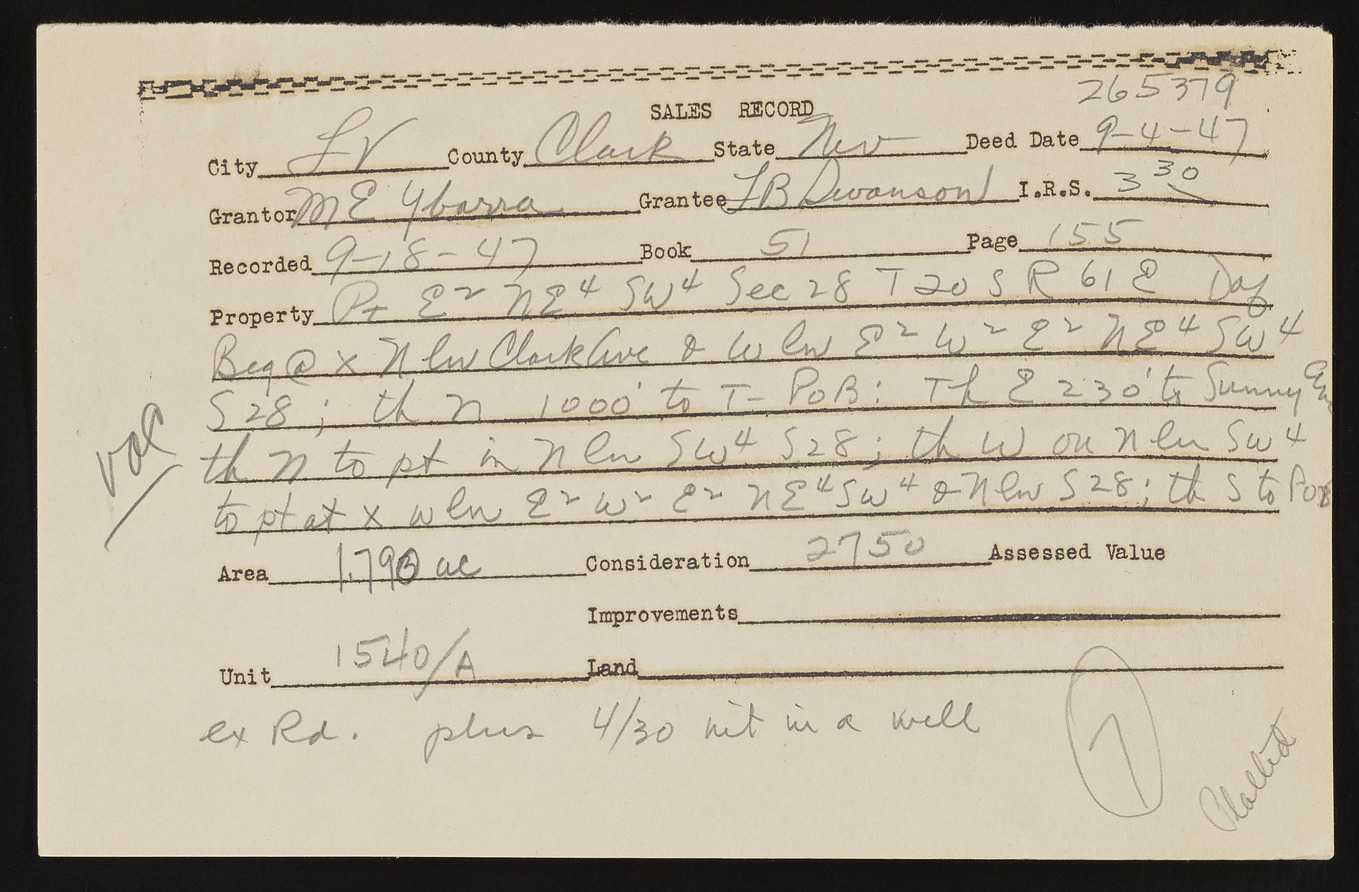 265379
SALES RECORD
City LV County Clark State Nev Deed Date 9-4-47
Grantor M E Ybarra Grantee L B Swanson I.R.S. 3 30
Recorded 9-18-47 Book 51 Page 155
Property Pt E2 NE4 SW4 Sec 28 T 20 S R 61 E Daf
Beg @ X N ln Clark Ave & W ln E2 W2 E2 NE4 SW4
S28; th N 1000' to T-PoB: Th E 230' to Sunny
th N to pt in N ln SW4 S28; th W on N ln SW4
to pt at X W ln E2 W2 E2 NE4 SW4 & N ln S28; th S to PoB
vac
Area 1.79 ac Consideration 2750 Assessed Value
Improvements
Unit 1540/A Land
ex Rd. plus 4/30 int in a well
7
Platted